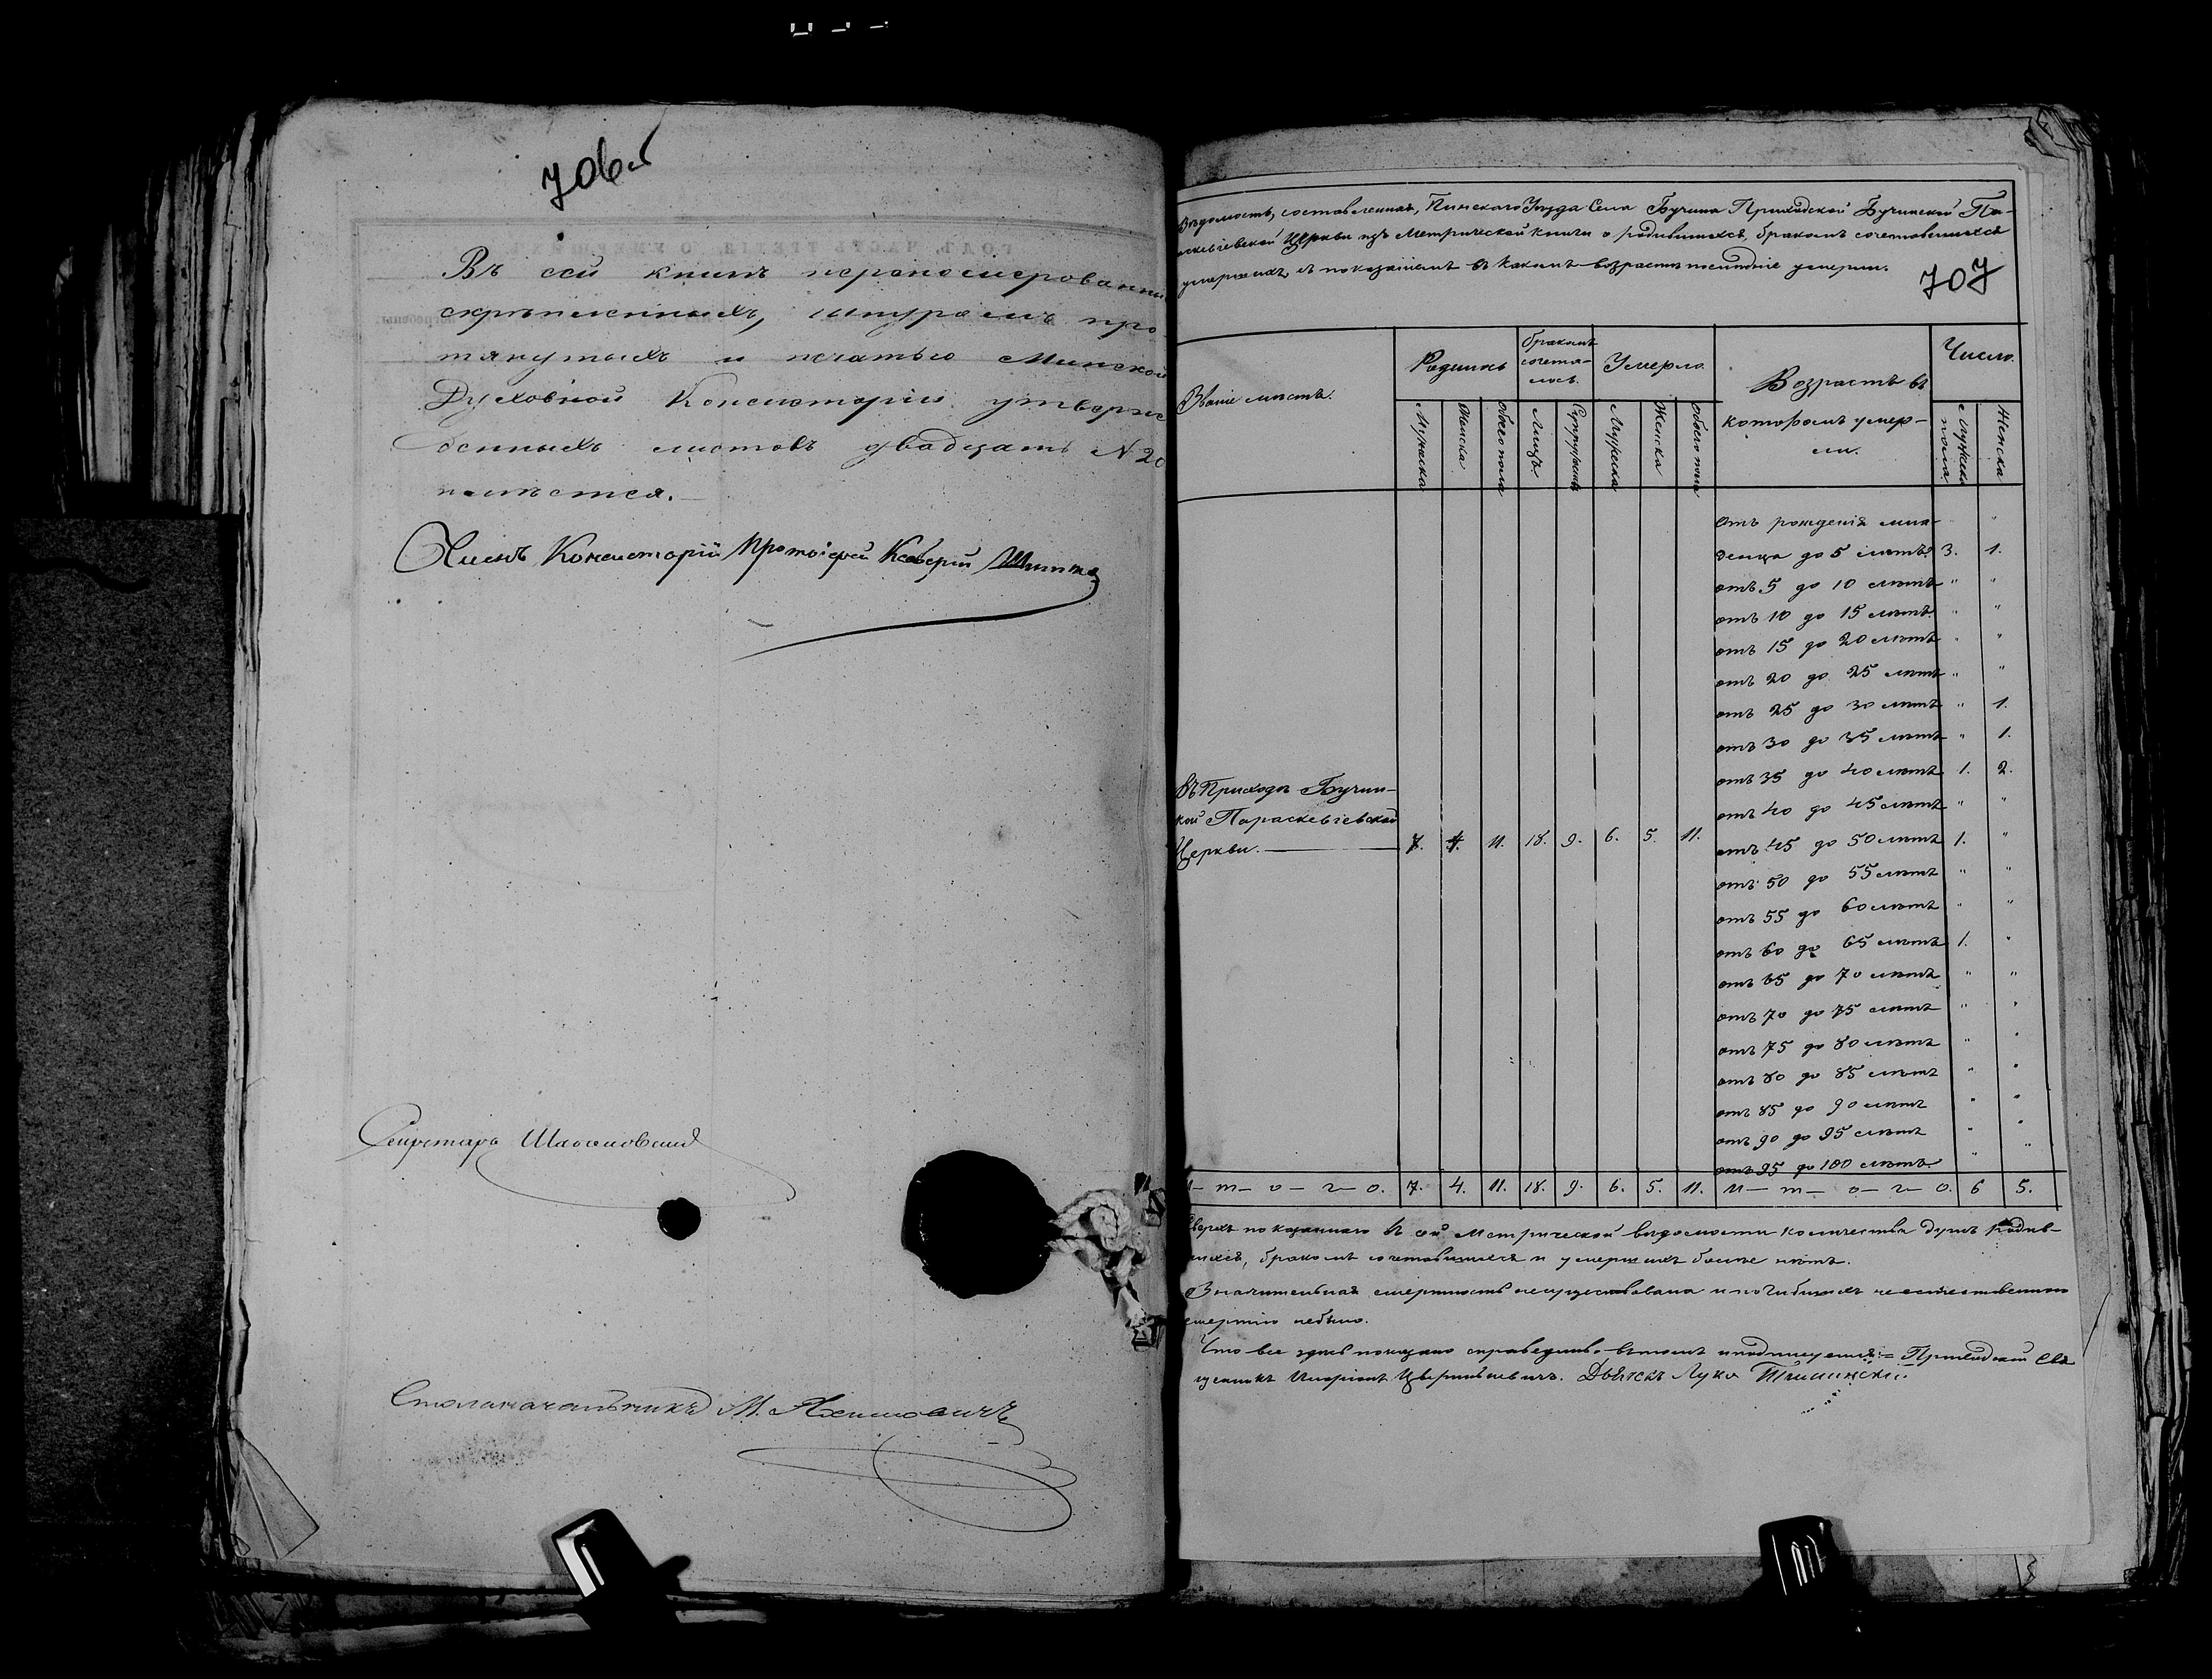 706об
Въ сей книгѣ перенумерованныхъ
скрѣпленныхъ, шнуромъ про-
тянутыхъ и печатью Минской
Духовной Консисторіи утверж-
денныхъ листовъ двадцать N 20
имѣется.
Членъ Консисторіи Протоіерей
Секретарь
Столоначальникъ М.
Вѣдомость, составленная, Пинскаго Уѣзда Села Бучина Приходской Бучинской Па-
раскевіевской Церкви изъ Метрической книги о родившихся, бракомъ сочетавшихся
умершихъ, съ показаніемъ въ какомъ возрастѣ послѣдніе умерли.
707
Званіе мѣстъ. Родилось бракомъ сочета-лось. Умерло. Возрастъ въ которомъ умер-ли. Число.
Мужеска Женска Обоего пола Лицъ Супружествъ Мужеска Женска Обоего пола Мужеска пола Женска
отъ рожденія мла- "
денца до 5 лѣтъ 3. 1.
отъ 5 до 10 лѣтъ " "
отъ 10 до 15 лѣтъ " "
отъ 15 до 20 лѣтъ " "
отъ 20 до 25 лѣтъ " "
отъ 25 до 30 лѣтъ " 1.
отъ 30 до 35 лѣтъ " 1.
отъ 35 до 40 лѣтъ 1. 2.
Въ Приходѣ Бучин-
кой Параскевіевской
отъ 40 до 45 лѣтъ " "
Церкви. 7. 4. 11. 18. 9. 6. 5. 11. отъ 45 до 50 лѣтъ 1. "
отъ 50 до 55 лѣтъ " "
отъ 55 до 60 лѣтъ " "
отъ 60 до 65 лѣтъ 1. "
отъ 65 до 70 лѣтъ " "
отъ 70 до 75 лѣтъ " "
отъ 75 до 80 лѣтъ " "
отъ 80 до 85 лѣтъ " "
отъ 85 до 90 лѣтъ " "
отъ 90 до 95 лѣтъ " "
отъ 95 до 100 лѣтъ " "
И-т-о-г-о. 7. 4. 11. 18. 9. 6. 5. 11. И-т-о-г-о. 6 5.
Сверхъ показаннаго въ сей Метрической вѣдомости количества душъ родив-
шихся, бракомъ сочетавшихся и умершихъ болѣе нѣтъ.
Значительная смертность несуществовала и погибшихъ неестественною
смертію небыло.
Что все здѣсь показано справедливо въ томъ и подписуемся: = Приходскій Свя
щенникъ Дьячекъ Лука